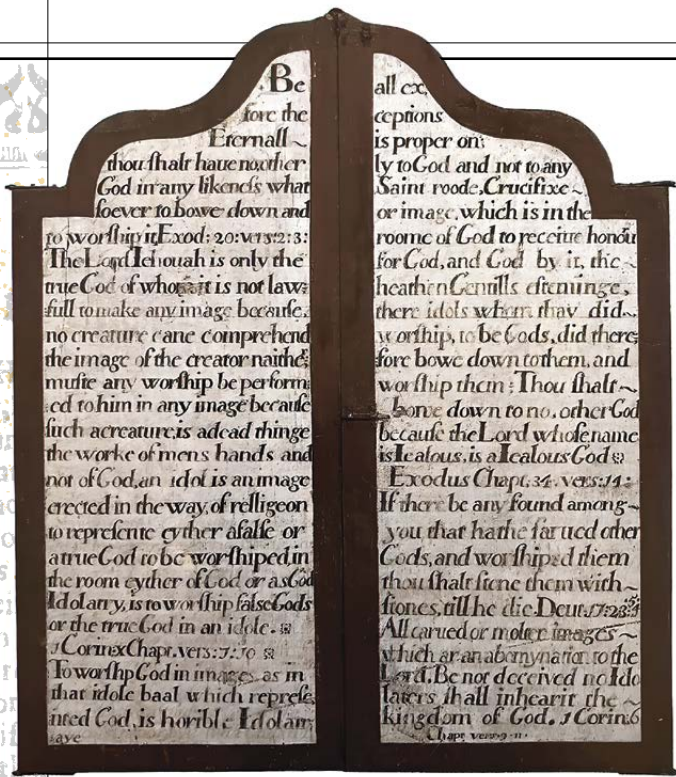 Be
fore the
Eternall ~
thou ſhalt haue no other
God in any likeneſs what
ſoever to bowe down and
to worſhip it Exod: 20:vers:2:3:
The Lord Iehouah is only the
true God of whom it is not law:
full to make any image becauſe,
no creature cane comprehend
the image of the creator naithe;
muſte any worſhip be perform;
ed to him in any image becauſe
ſuch acreature, is adead thinge
the worke of mens hands and
not of God, an idol is an image
erected in the way, of relligeon
to repreſente eyther afalſe or
atrue God to be worſhiped, in
the room eyther of God or as God
Idolatry, is to worſhip falſe Gods
or the true God in an idole.
1 Corinx Chapt. vers:7:10
To worſhp God in images, as in
that idole baal which repreſe,
nted God, is horible Idolatry
saye
all ex,
ceptions
is proper on:
ly to God and not to any
Saint roode, Crucifixe ~
or image, which is in the
roome of God to receiue honour
for God, and God by it, the ~
heathen Gentills eſteminge,
there idols whom thay did ~
worſhip, to be Gods, did there;
fore bowe down to them, and
worſhip them : Thou ſhalt ~
bowe down to no, other God
becauſe the Lord whoſe name
is Iealous, is a Iealous God
Exodus Chapt. 34. vers:14:
If there be any found among ~
you that hathe ſarued other
Gods, and worſhiped them
thou ſhalt ſtone them with ~
ſtones, till he die. Deut. 17:
All carued or molten images ~
which ar an abomynation to the
Lord. Be not deceived no Ido
laters ſhall inhearit the ~
kingdom of God. 1 Corin:6
Chapt vers·9·11·